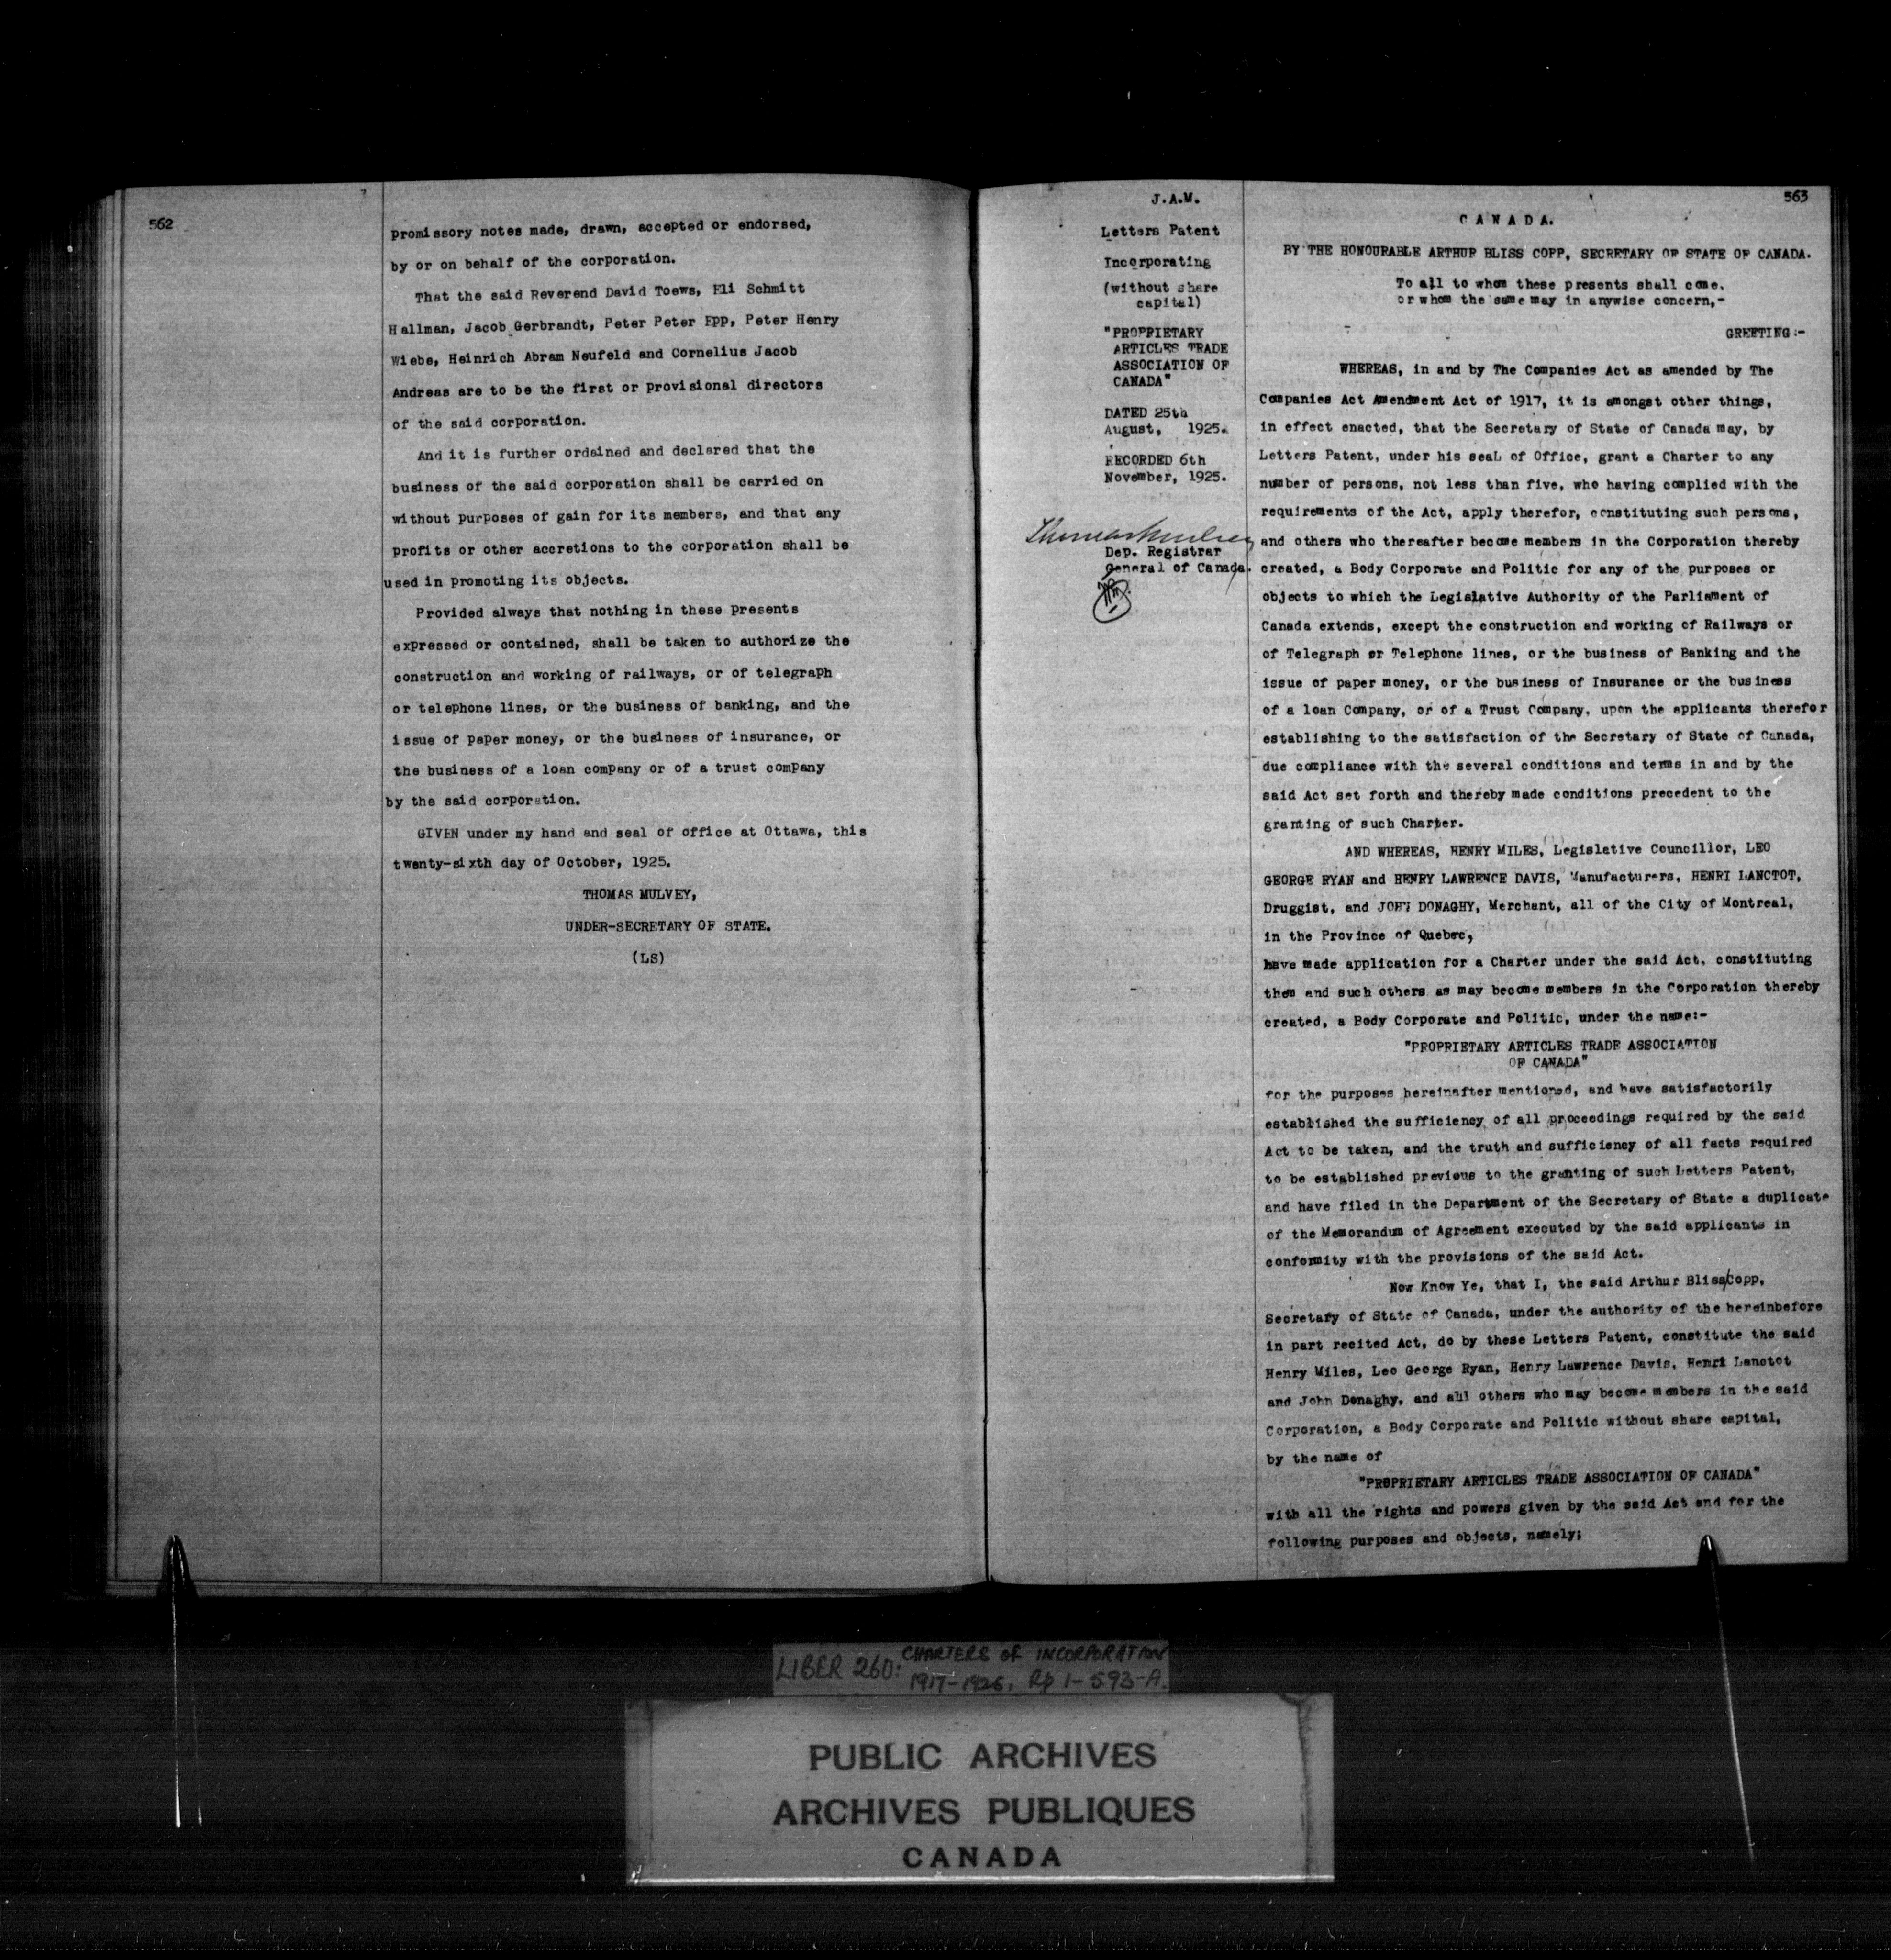 562
promissory notes made, drawn, accepted or endorsed,
by or on behalf of the corporation.
That the said Reverend David Toews, Eli Schmitt
Hallman, Jacob Gerbrandt, Peter Peter Epp, Peter Henry
Wiebe, Heinrich Abram Neufeld and Cornelius Jacob
Andreas are to be the first or provisional directors
of the said corporation.
And it is further ordained and declared that the
business of the said corporation shall be carried on
without purposes of gain for its members, and that any
profits or other accretions to the corporation shall be
used in promoting its objects.
Provided always that nothing in these presents
expressed or contained, shall be taken to authorize the
construction and working of railways, or of telegraph
or telephone lines, or the business of banking, and the
issue of paper money, or the business of insurance, or
the business of a loan company or of a trust company
by the said corporation.
GIVEN under my hand and seal of office at Ottawa, this
twenty-sixth day of October, 1925.
THOMAS MULVEY,
UNDER-SECRETARY OF STATE.
(LS)
J.A.M.
Letters Patent
Incorporating
(without share
capital)
"PROPRIETARY
ARTICLES TRADE
ASSOCIATION OF
CANADA"
DATED 25th
August, 1925.
RECORDED 6th
November, 1925.
Thomas Mulvey
Dep. Registrar
General of Canada.
563
CANADA.
BY THE HONOURABLE ARTHUR BLISS COPP, SECRETARY OF STATE OF CANADA.
To all to whom these presents shall come,
or whom the same may in anywise concern,-
GREETING:-
WHEREAS, in and by The Companies Act as amended by The
Companies Act Amendment Act of 1917, it is amongst other things,
in effect enacted, that the Secretary of State of Canada may, by
Letters Patent, under his seal of Office, grant a Charter to any
number of persons, not less than five, who having complied with the
requirements of the Act, apply therefor, constituting such persons,
and others who thereafter become members in the Corporation thereby
created, a Body Corporate and Politic for any of the purposes or
objects to which the Legislative Authority of the Parliament of
Canada extends, except the construction and working of Railways or
of Telegraph or Telephone lines, or the business of Banking and the
issue of paper money, or the business of Insurance or the business
of a loan Company, or of a Trust Company, upon the applicants therefor
establishing to the satisfaction of the Secretary of State of Canada,
due compliance with the several conditions and terms in and by the
said Act set forth and thereby made conditions precedent to the
granting of such Charter.
AND WHEREAS, HENRY MILES, Legislative Councillor, LEO
GEORGE RYAN and HENRY LAWRENCE DAVIS, Manufacturers, HENRI LANCTOT,
Druggist, and JOHN DONAGHY, Merchant, all of the City of Montreal,
in the Province of Quebec,
have made application for a Charter under the said Act, constituting
them and such others as may become members in the Corporation thereby
created, a Body Corporate and Politic, under the name:-
"PROPRIETARY ARTICLES TRADE ASSOCIATION
OF CANADA"
for the purposes hereinafter mentioned, and have satisfactorily
established the sufficiency of all proceedings required by the said
Act to be taken, and the truth and sufficiency of all facts required
to be established previous to the granting of such Letters Patent,
and have filed in the Department of the Secretary of State a duplicate
of the Memorandum of Agreement executed by the said applicants in
conformity with the provisions of the said Act.
Now Know Ye, that I, the said Arthur Bliss/Copp,
Secretary of State of Canada, under the authority of the hereinbefore
in part recited Act, do by these Letters Patent, constitute the said
Henry Miles, Leo George Ryan, Henry Lawrence Davis, Henri Lanctot
and John Donaghy, and all others who may become members in the said
Corporation, a Body Corporate and Politic without share capital,
by the name of
"PROPRIETARY ARTICLES TRADE ASSOCIATION OF CANADA"
with all the rights and powers given by the said Act and for the
following purposes and objects, namely;
LIBER 260: CHARTERS OF INCORPORATION
1917-1926, Rp 1-593-A.
PUBLIC ARCHIVES
ARCHIVES PUBLIQUES
CANADA